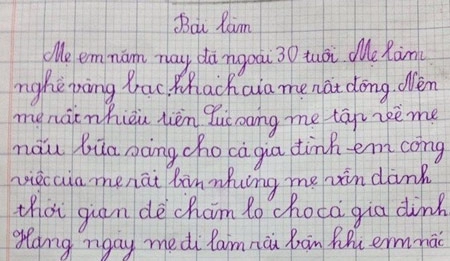 Bài làm
Mẹ em năm nay đã ngoài 30 tuổi. Mẹ làm
nghề vàng bạc. Khach của mẹ rất đông. Nên
mẹ rất nhiều tiền. Lúc sáng mẹ tập về mẹ
nấu bữa sáng cho cả gia đình em công
việc của mẹ rất bận nhưng mẹ vẫn dành
thời gian để chăm lo cho cả gia đình
Hàng ngày mẹ đi làm rất bận khi em mắc